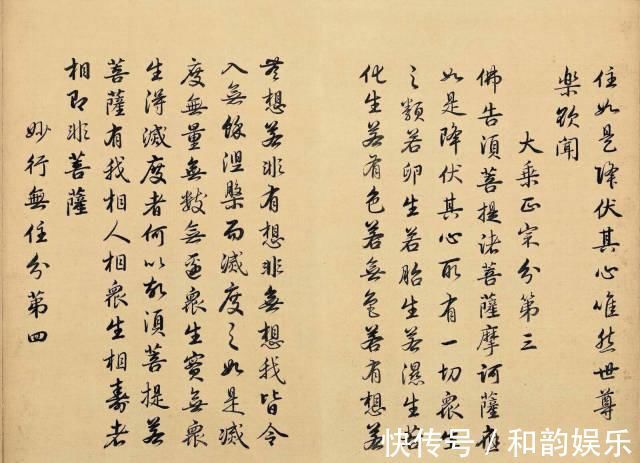 住如是降伏其心唯然世尊
樂欲聞
大乘正宗分第三
佛告須菩提諸菩薩摩訶薩應
如是降伏其心所有一切衆生
之類若卵生若胎生若濕生若
化生若有色若無色若有想若
無想若非有想非無想我皆令
入無餘涅槃而滅度之如是滅
度無量無數無邊衆生實無衆
生得滅度者何以故須菩提若
菩薩有我相人相衆生相壽者
相即非菩薩
妙行無住分第四
快传号 / 和韵娱乐